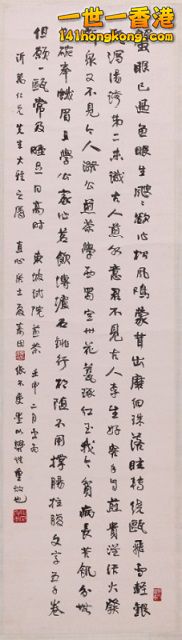 一世一香港
141hongkong.com
蟹眼已過魚眼生颼颼欲作松風鳴蒙茸出磨細珠落眩轉繞甌飛雪輕銀
瓶瀉湯誇第二未識古人煎水意君不見古人李生好客手自煎貴從活火發
新泉又不見今人潞公煎茶學西蜀定州花瓷琢紅玉我今貧病長苦飢分無玉
碗奉蛾眉且學公家作茗飲磚爐石銚行相隨不用撐腸拄腹文字五千卷
但願一甌常及睡足日高時 東坡試院煎茶 壬申二月
仁兄先生大雅之屬